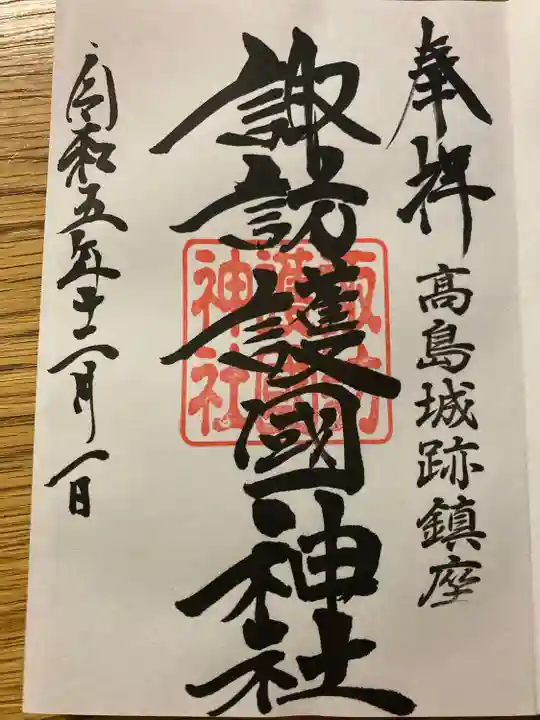 奉拝
高島城跡鎮座
諏訪護國神社
諏訪
護國
神社
令和五年十二月一日